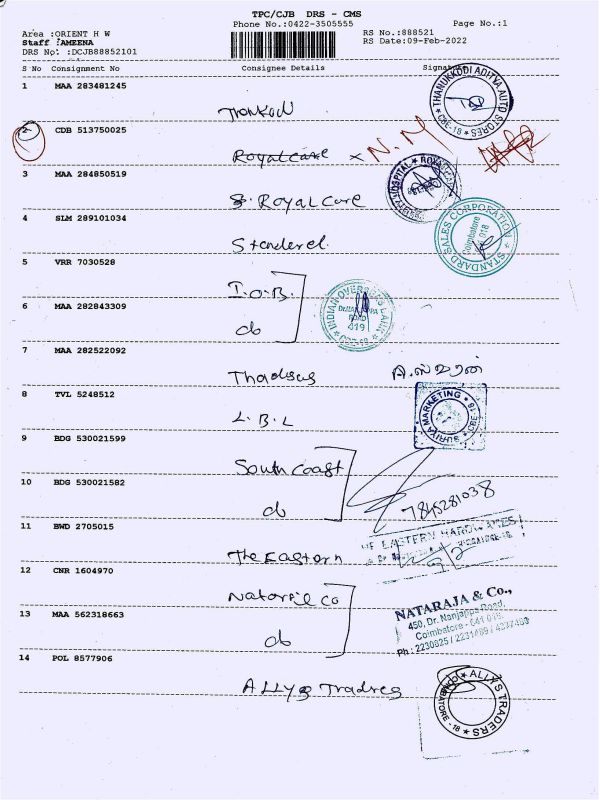 TPC/CJB DRS - CMS
Phone No.:0422-3505555
Page No.:1
Area :ORIENT H W
RS No.:888521
Staff :AMEENA
RS Date:09-Feb-2022
DRS No. :DCJB88852101
S No Consignment No Consignee Details Signature
1 MAA 283481245
THANUKKODI ADITYA AUTO STORES CBE-18
2 CDB 513750025
Royal care x N.M
3 MAA 284850519
Royal Care
4 SLM 289101034
STANDARD SALES CORPORATION Coimbatore 018
5 VRR 7030528
I.O.B.
6 MAA 282843309
do
INDIAN OVERSEAS BANK
7 MAA 282522092
8 TVL 5248512
L.B.L
SURIYA MARKETING CBE-18
9 BDG 530021599
South Coast
10 BDG 530021582
do
7845281038
11 BWD 2705015
The Eastern
EASTERN HARDWARES
12 CNR 1604970
13 MAA 562318663
do
NATARAJA & Co.,
450, Dr. Nanjappa Road,
Coimbatore - 641 018.
14 POL 8577906
ALLYS TRADERS